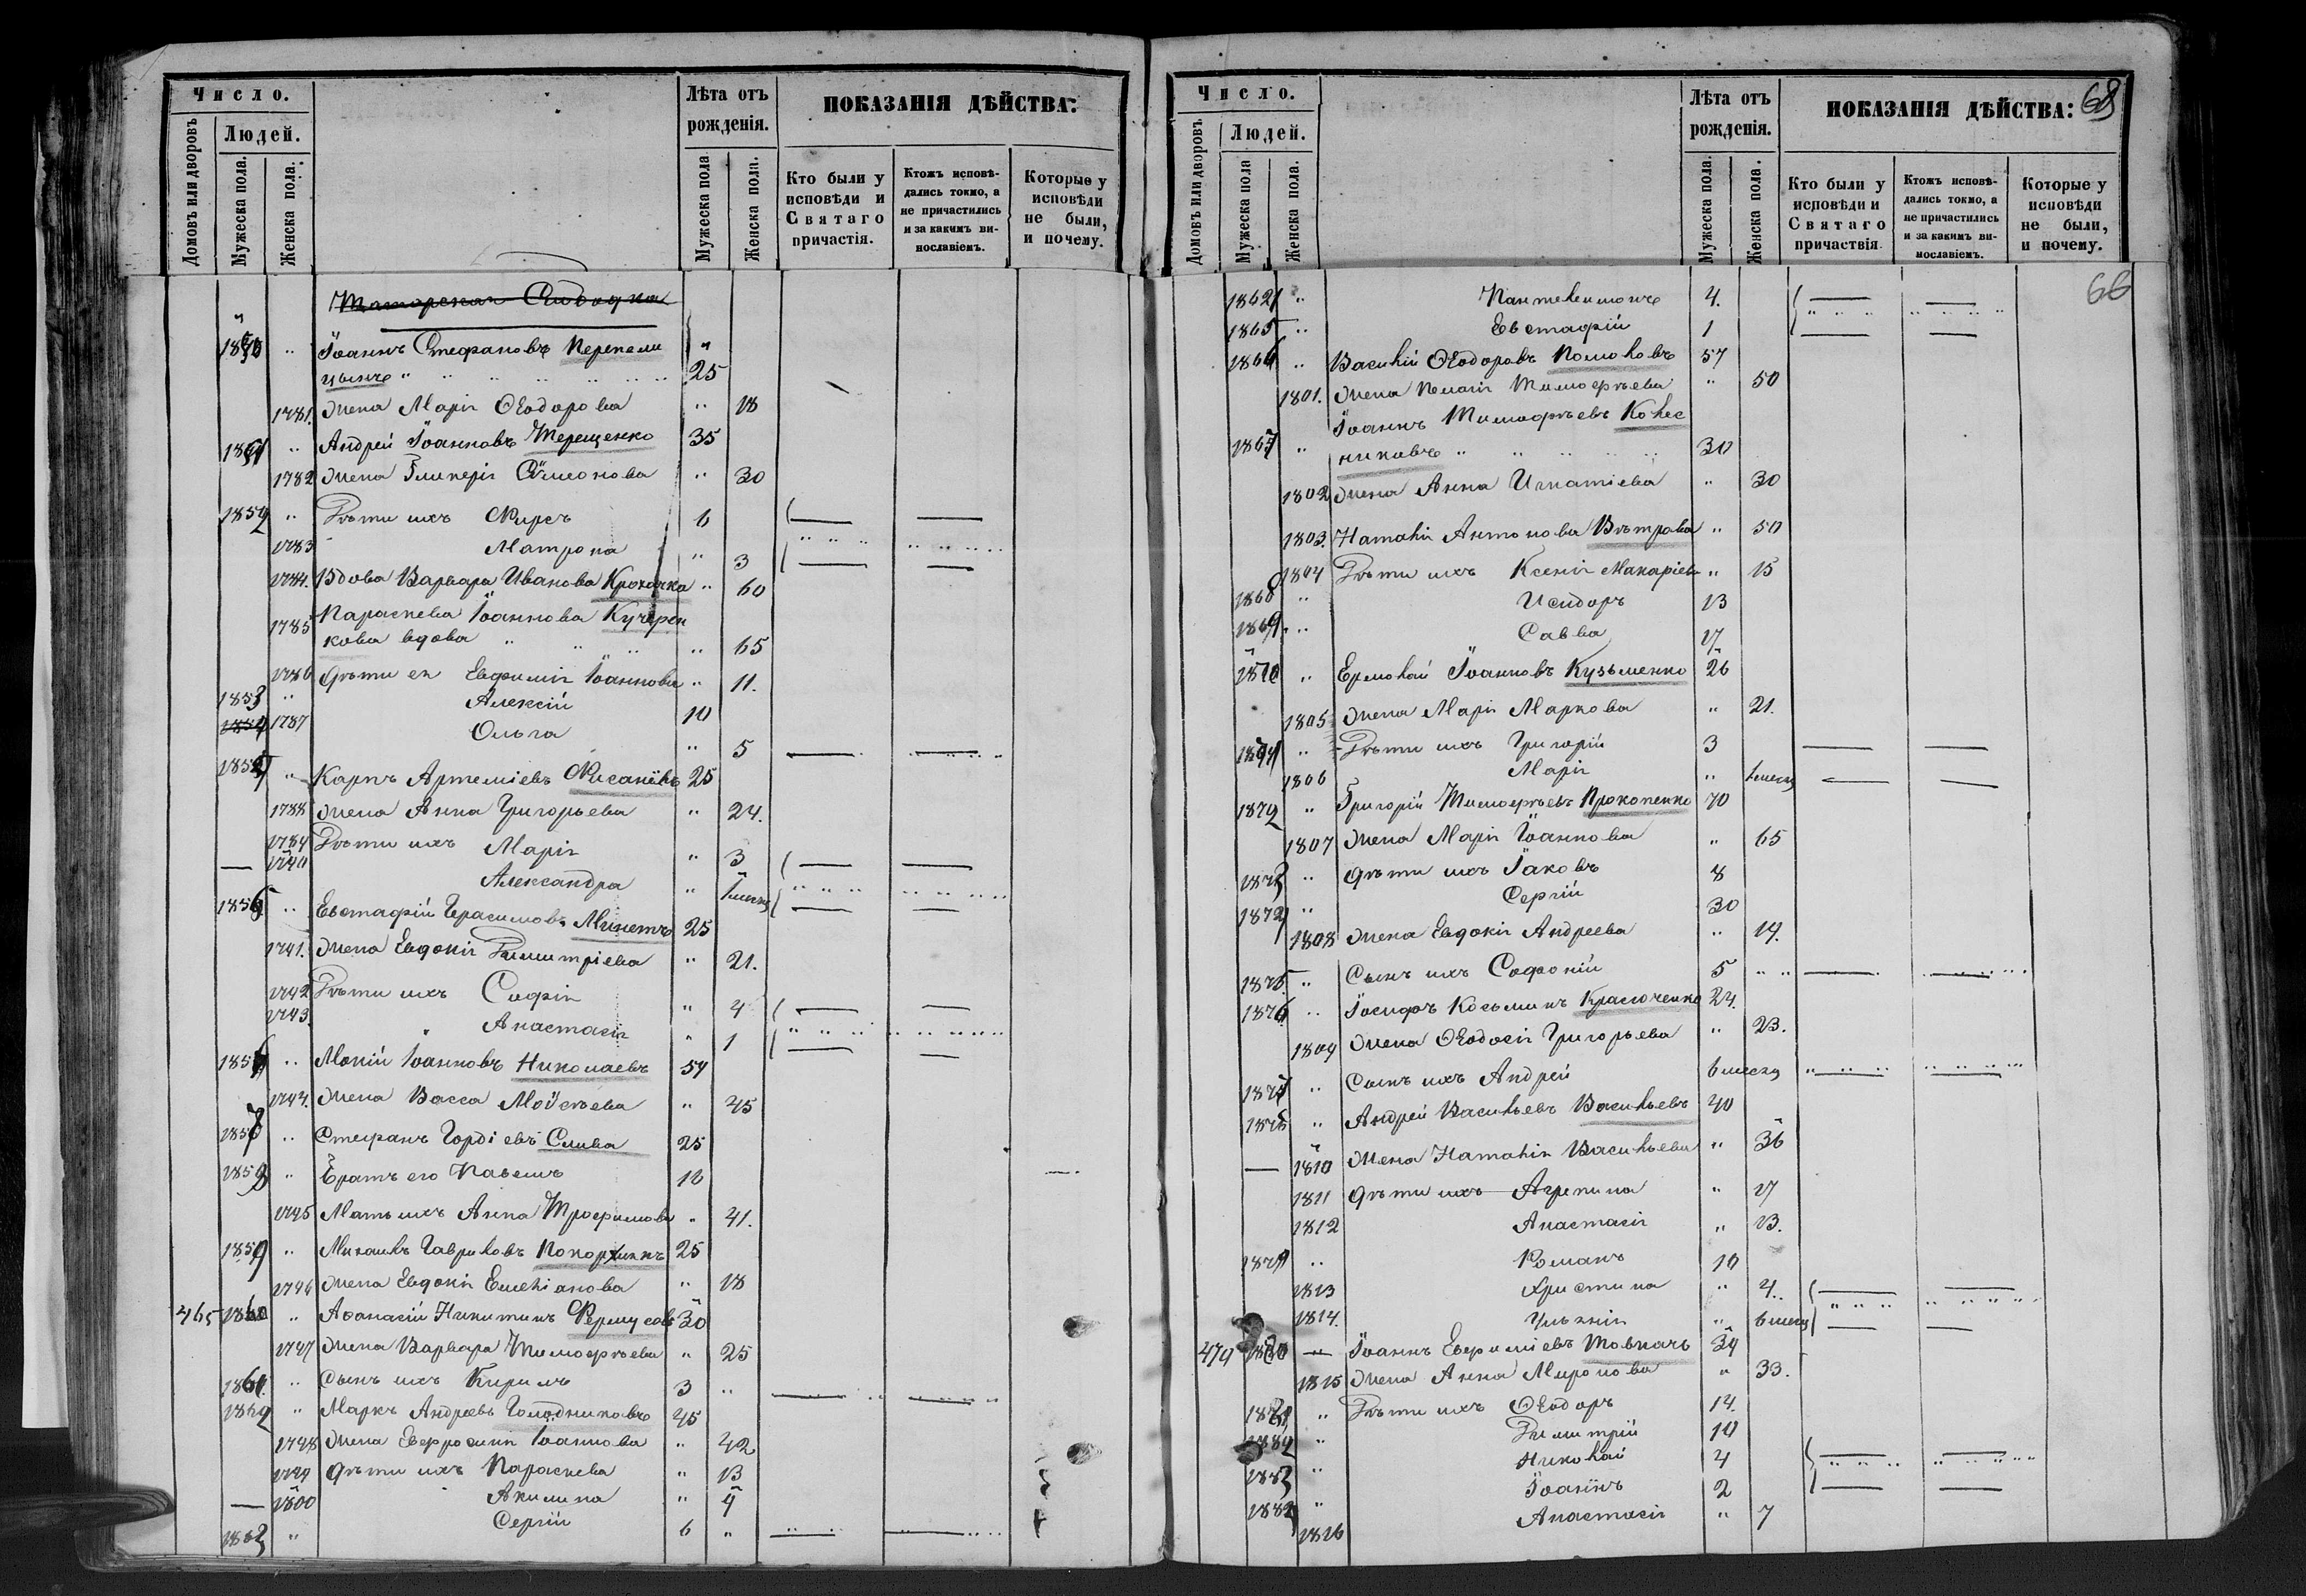 Число.
Людей.
Домовъ или дворовъ
Мужеска пола.
Женска пола.
Лѣта отъ
рожденія.
Мужеска пола
Женска пола.
ПОКАЗАНІЯ ДѢЙСТВА:
Кто были у
исповѣди и
Святаго
причастія.
Ктожъ исповѣ-
дались токмо, а
не причастились
и за какимъ ви-
нословіемъ.
Которые у
исповѣди
не были,
и почему.
Іоаннъ Стефановъ Перепели
цынъ 25
1781. Жена Марія Ѳеодорова 18
Андрей Іоанновъ Терещенко 35
1782 Жена Гликерія Сѵмеонова 30
1852 Дѣти ихъ Фирсъ 6
1783 Матрона 3
1784. Вдова Варвара Иванова 60
1785 Параскева Іоаннова Кучерен
кова вдова 65
1786 Дѣти ея Евфимія Іоаннова 11.
1853 Алексій 10
1787 Ольга 5
Карпъ Артеміевъ 25
1788 Жена Анна Григорьева 24.
1789 Дѣти ихъ Марія 3
1790 Александра
Евстафій Герасимовъ Микетъ 25
1791. Жена Евдокія Димитріева 21.
1792 Дѣти ихъ Софія 4
1793. Анастасія 1
Мокій Іоанновъ Николаевъ 54
1794. Жена Васса Моѵсѣева 45
1857 Стефанъ Гордіевъ Слива 25
1858 Братъ его Павелъ 10
1795 Мать ихъ Анна Трофимова 41.
1859 Михаилъ Гавриловъ 25
1796 Жена Евдокія Емеліанова 18
465 1860 Аѳанасій Никитинъ 30
1797 Жена Варвара Тимофѣева 25
1861. Сынъ ихъ Кирилъ 3
1862 Маркъ Андреевъ Голодниковъ 45
1798 Жена Евфросинія Іоаннова 42
1799 Дѣти ихъ Параскева 13
1800 Акилина 9
1863 Сергій 6
68
Число.
Людей.
Домовъ или дворовъ.
Мужеска пола
Женска пола.
Лѣта отъ
рожденія.
Мужеска пола.
Женска пола.
ПОКАЗАНІЯ ДѢЙСТВА:
Кто были у
исповѣди и
Святаго
причаствія.
Ктожъ исповѣ-
дались токмо, а
не причастились
и за какимъ ви-
нословіемъ.
Которые у
исповѣди
не были,
и почему.
66
1864 Пантелеимонъ 4.
1865 Евстафій 1
1866 Василій Ѳеодоровъ 57
1801. Жена Пелагія Тимофѣева 50
Іоаннъ Тимофѣевъ Колес
1867 никовъ 30
1802 Жена Анна Игнатіева 30
1803. Наталія Антонова Вѣтрова 50
1804 Дѣти ихъ Ксенія Макаріева 15
1868 Исидоръ 13
1869 Савва 17
1870 Ермолай Іоанновъ Кузьменко 26
1805 Жена Марія Маркова 21.
1871 Дѣти ихъ Григорій 3
1806 Марія
1872 Григорій Тимофѣевъ Прокопенко 70
1807 Жена Марія Іоаннова 65
1873 Дѣти ихъ Іаковъ 8
1874 Сергій 30
1808 Жена Евдокія Андреева 19.
1875. Сынъ ихъ Софоній 5
1876 Іосифъ Косьминъ Красюченко 24.
1809 Жена Ѳеодосія Григорьева 23.
1877 Сынъ ихъ Андрей
1878 Андрей Васильевъ Васильевъ 40
1810 Жена Наталія Васильева 36
1811 Дѣти ихъ Агрепина 17
1812 Анастасія 13.
1879 Романъ 10
1813 Христина 4.
1814. Ульянія
479 1880 Іоаннъ Евфиміевъ Товкачъ 34
1815 Жена Анна Миронова 33.
1881 Дѣти ихъ Ѳеодоръ 14.
1882 Димитрій 10
1883 Николай 4
Іоаннъ 2
1816 Анастасія 7